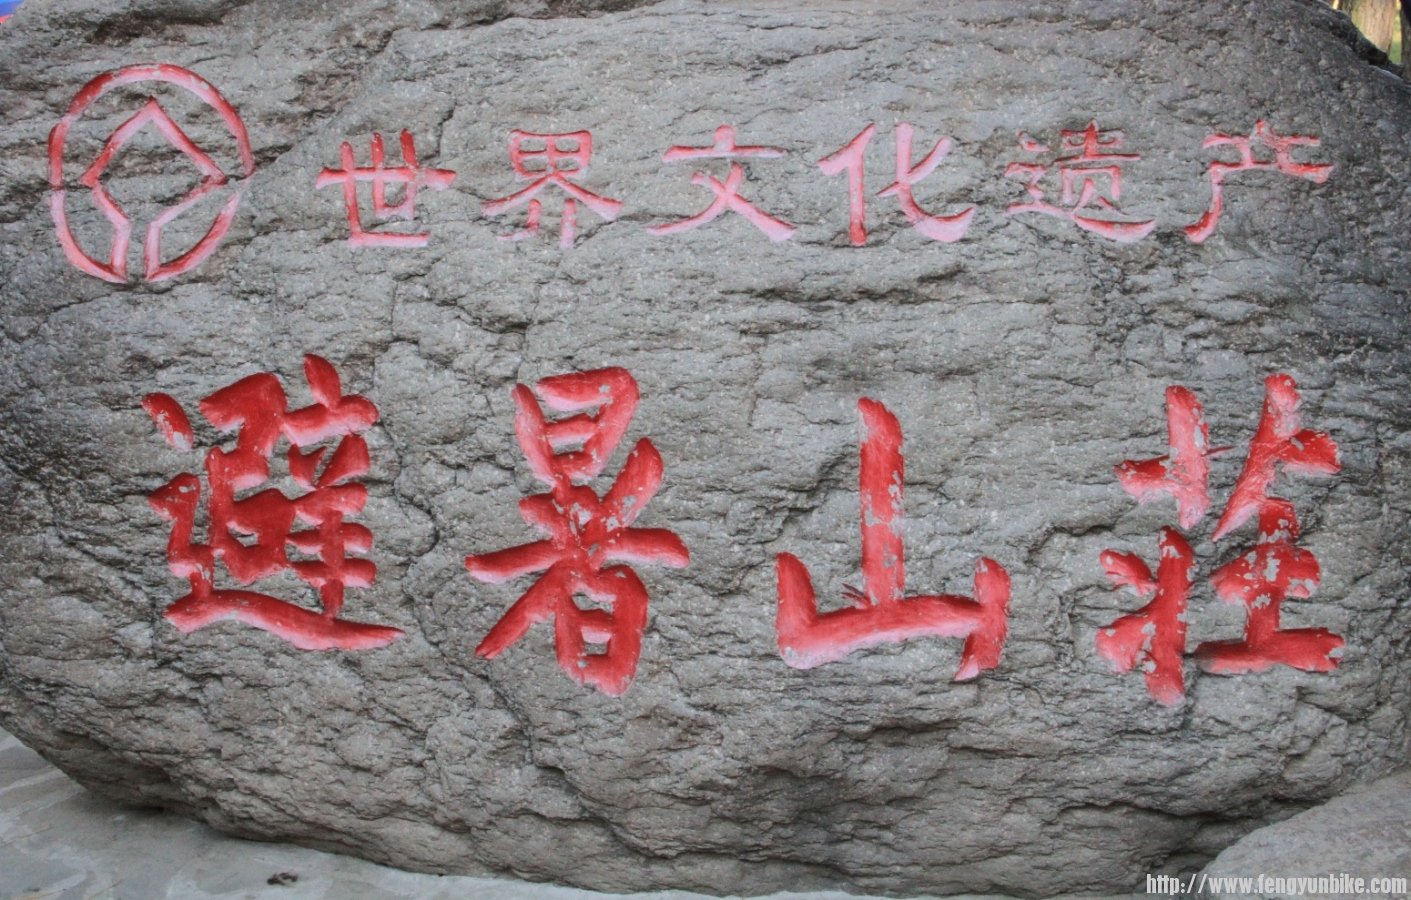 世界文化遗产
避暑山莊
http://www.fengyunbike.com